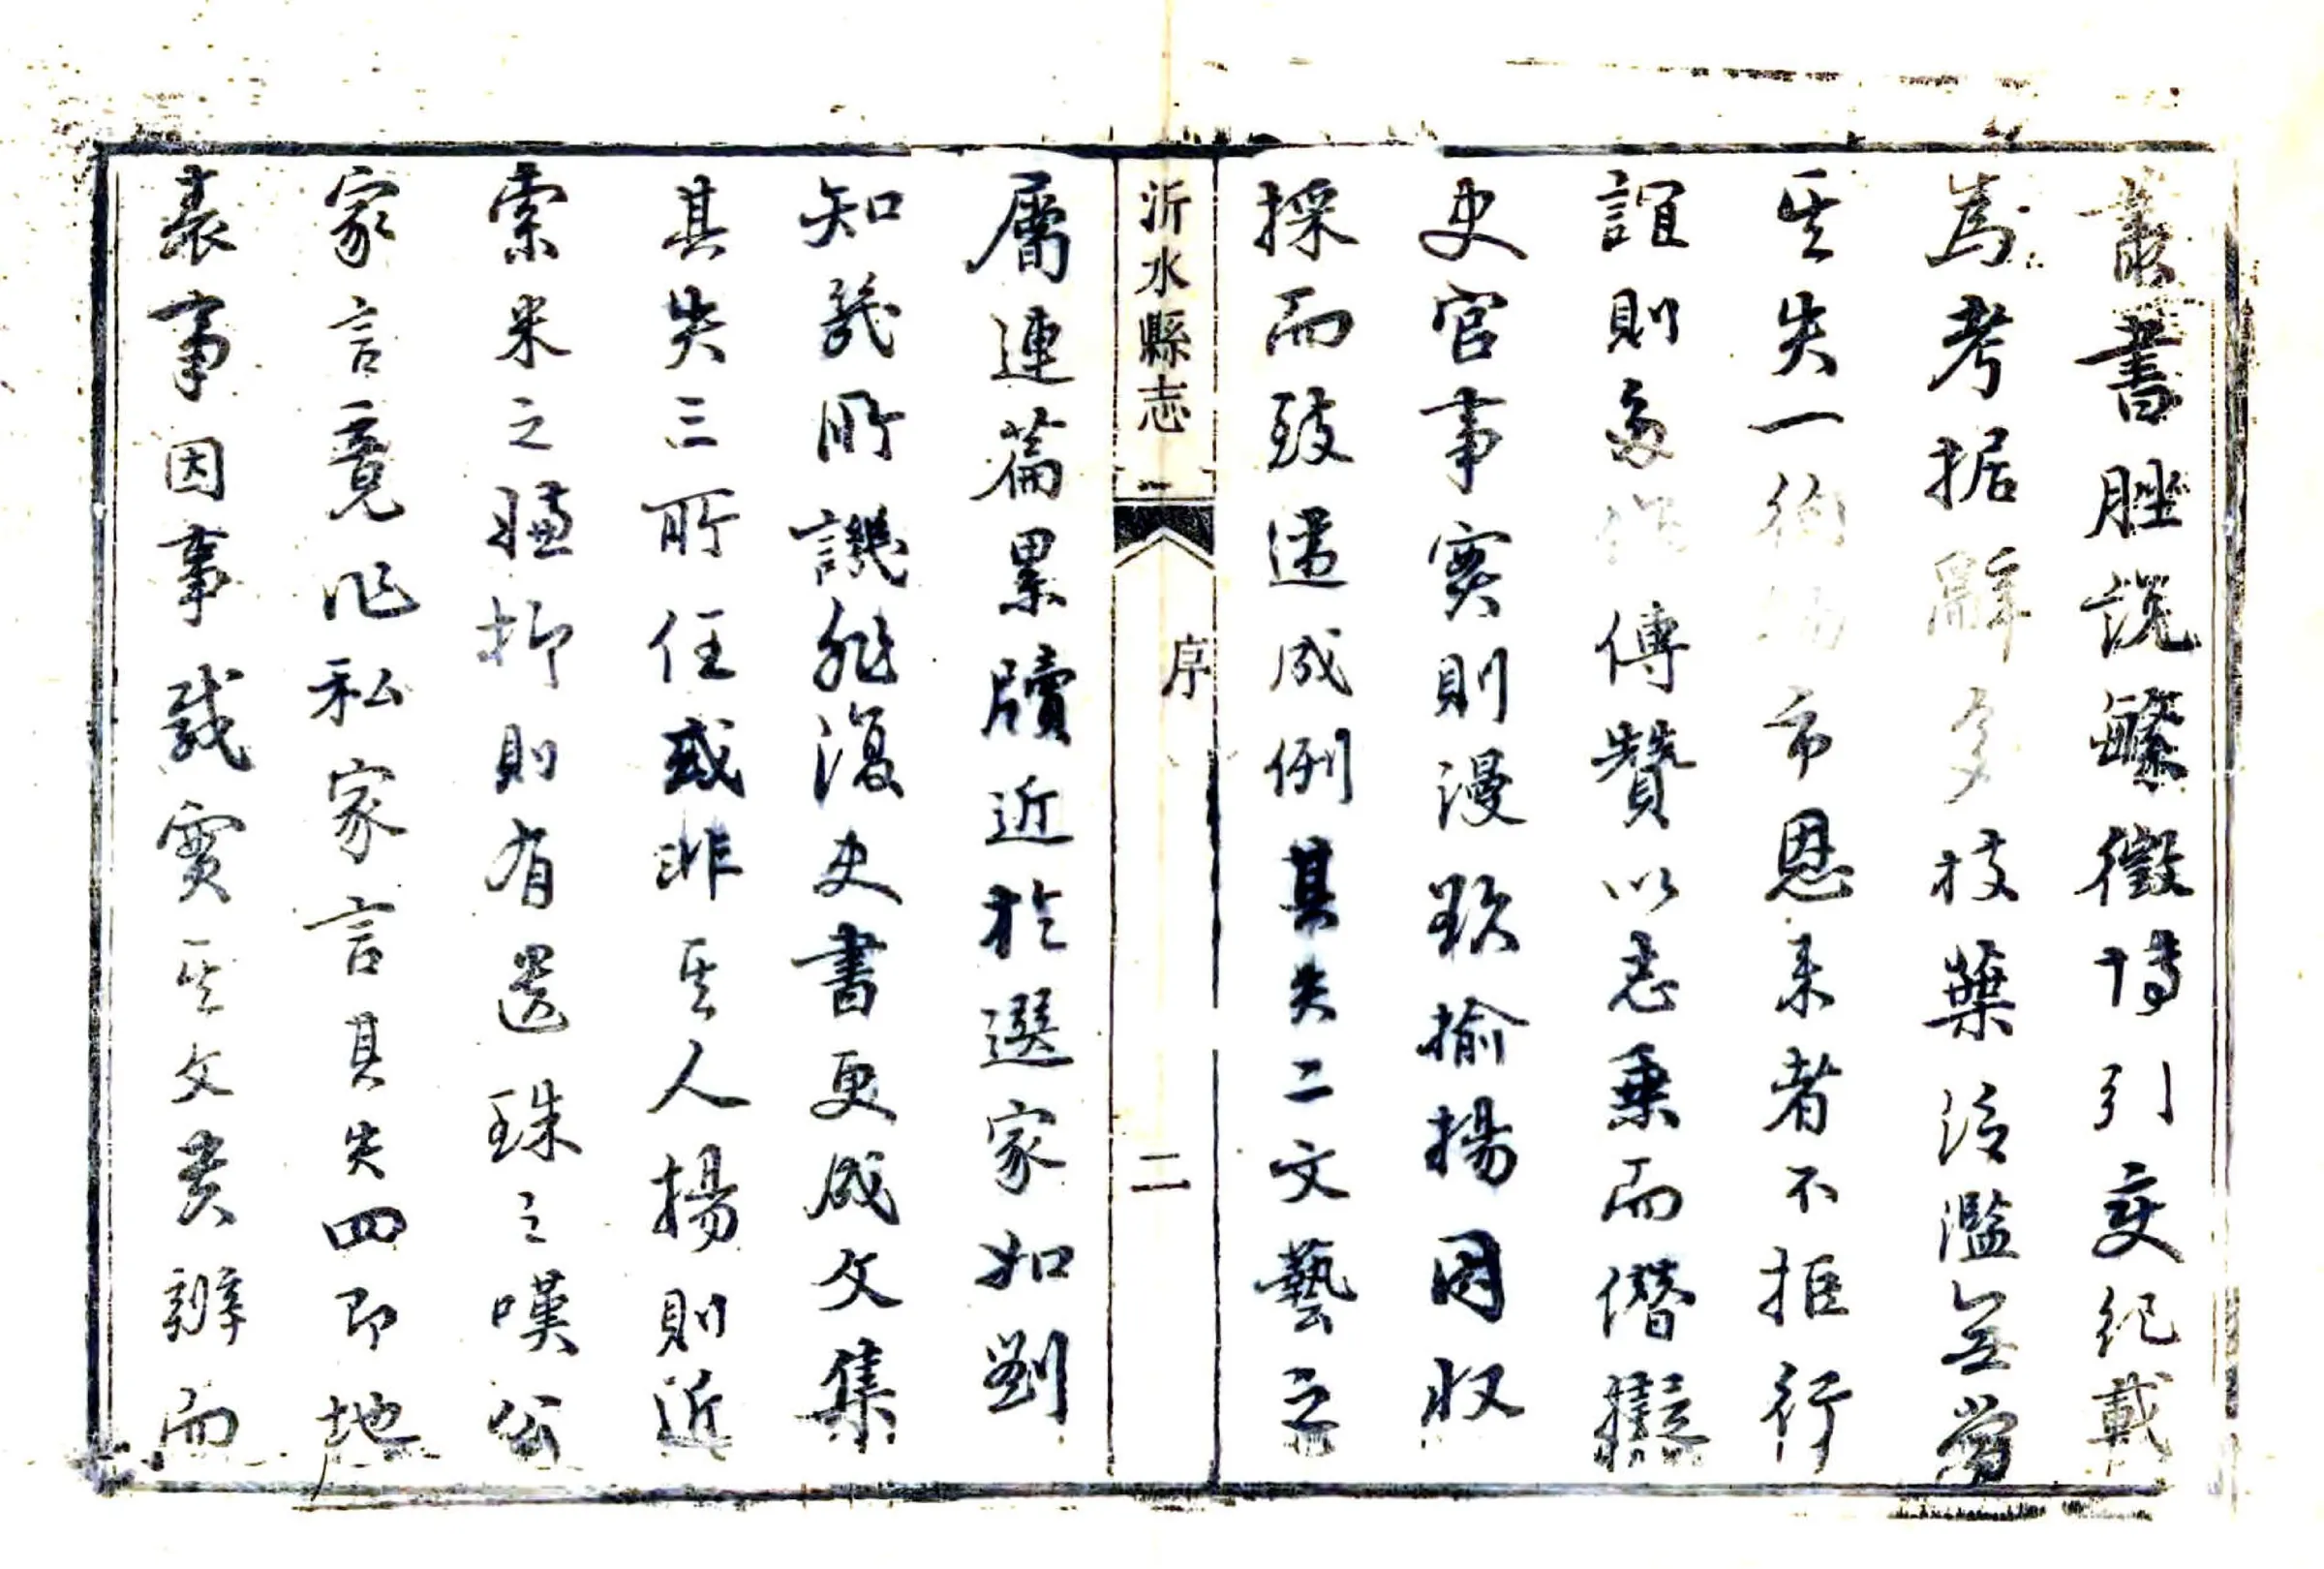 叢書脞說繁徵博引交紀載
為考据辭多枝葉泛濫無當
其失一徇 市恩来者不拒行
誼則多 傳贊以志乗而僭擬
史官事實則漫欺揄揚因収
採而致違成例其失二文藝之
沂水縣志 序 二
屬連篇累牘近於選家如劉
知幾所譏非復史書更成文集
其失三所任或非其人揚則近
索米之 抑則有還珠之嘆公
家言竟作私家言其失四即地
表事因事載實其文貴辨而